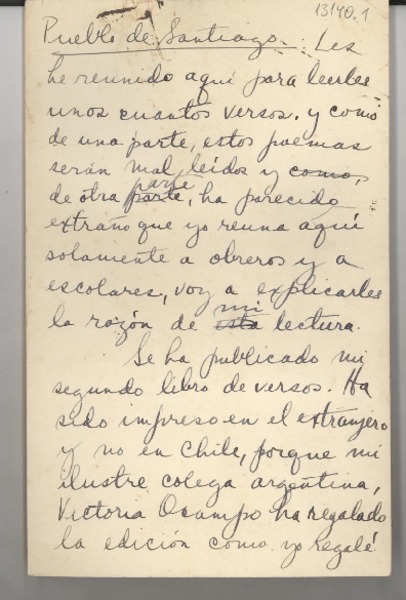 13140.1
Pueblo de Santiago: Les
he reunido aquí para leerles
unos cuantos versos. y como
de una parte, estos poemas
serán mal leídos y como,
de otra parte parte, ha parecido
extraño que yo reuna aquí
solamente a obreros y a
escolares, voy a explicarles
la razón de esta mi lectura.
Se ha publicado mi
segundo libro de versos. Ha
sido impreso en el extranjero
y no en Chile, porque mi
ilustre colega argentina,
Victoria Ocampo ha regalado
la edición como yo regalé